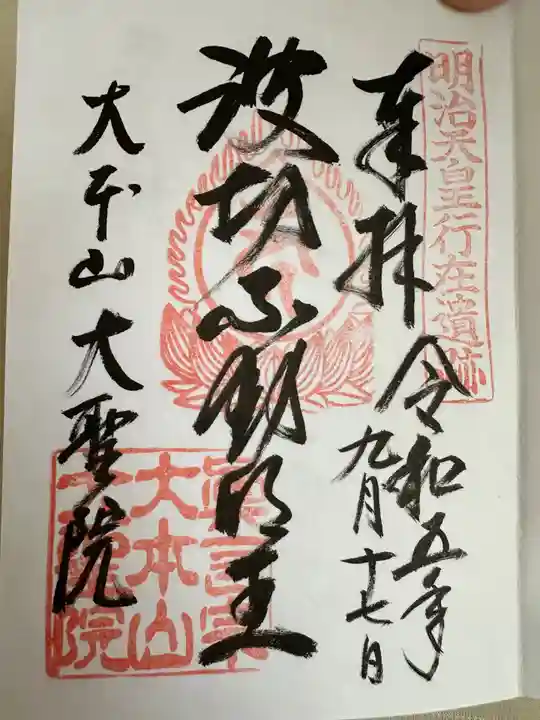 明治天皇行在遺跡
奉拝
令和五年
九月十七日
波切不動明王
大本山大聖院
真言宗
大本山
大聖院